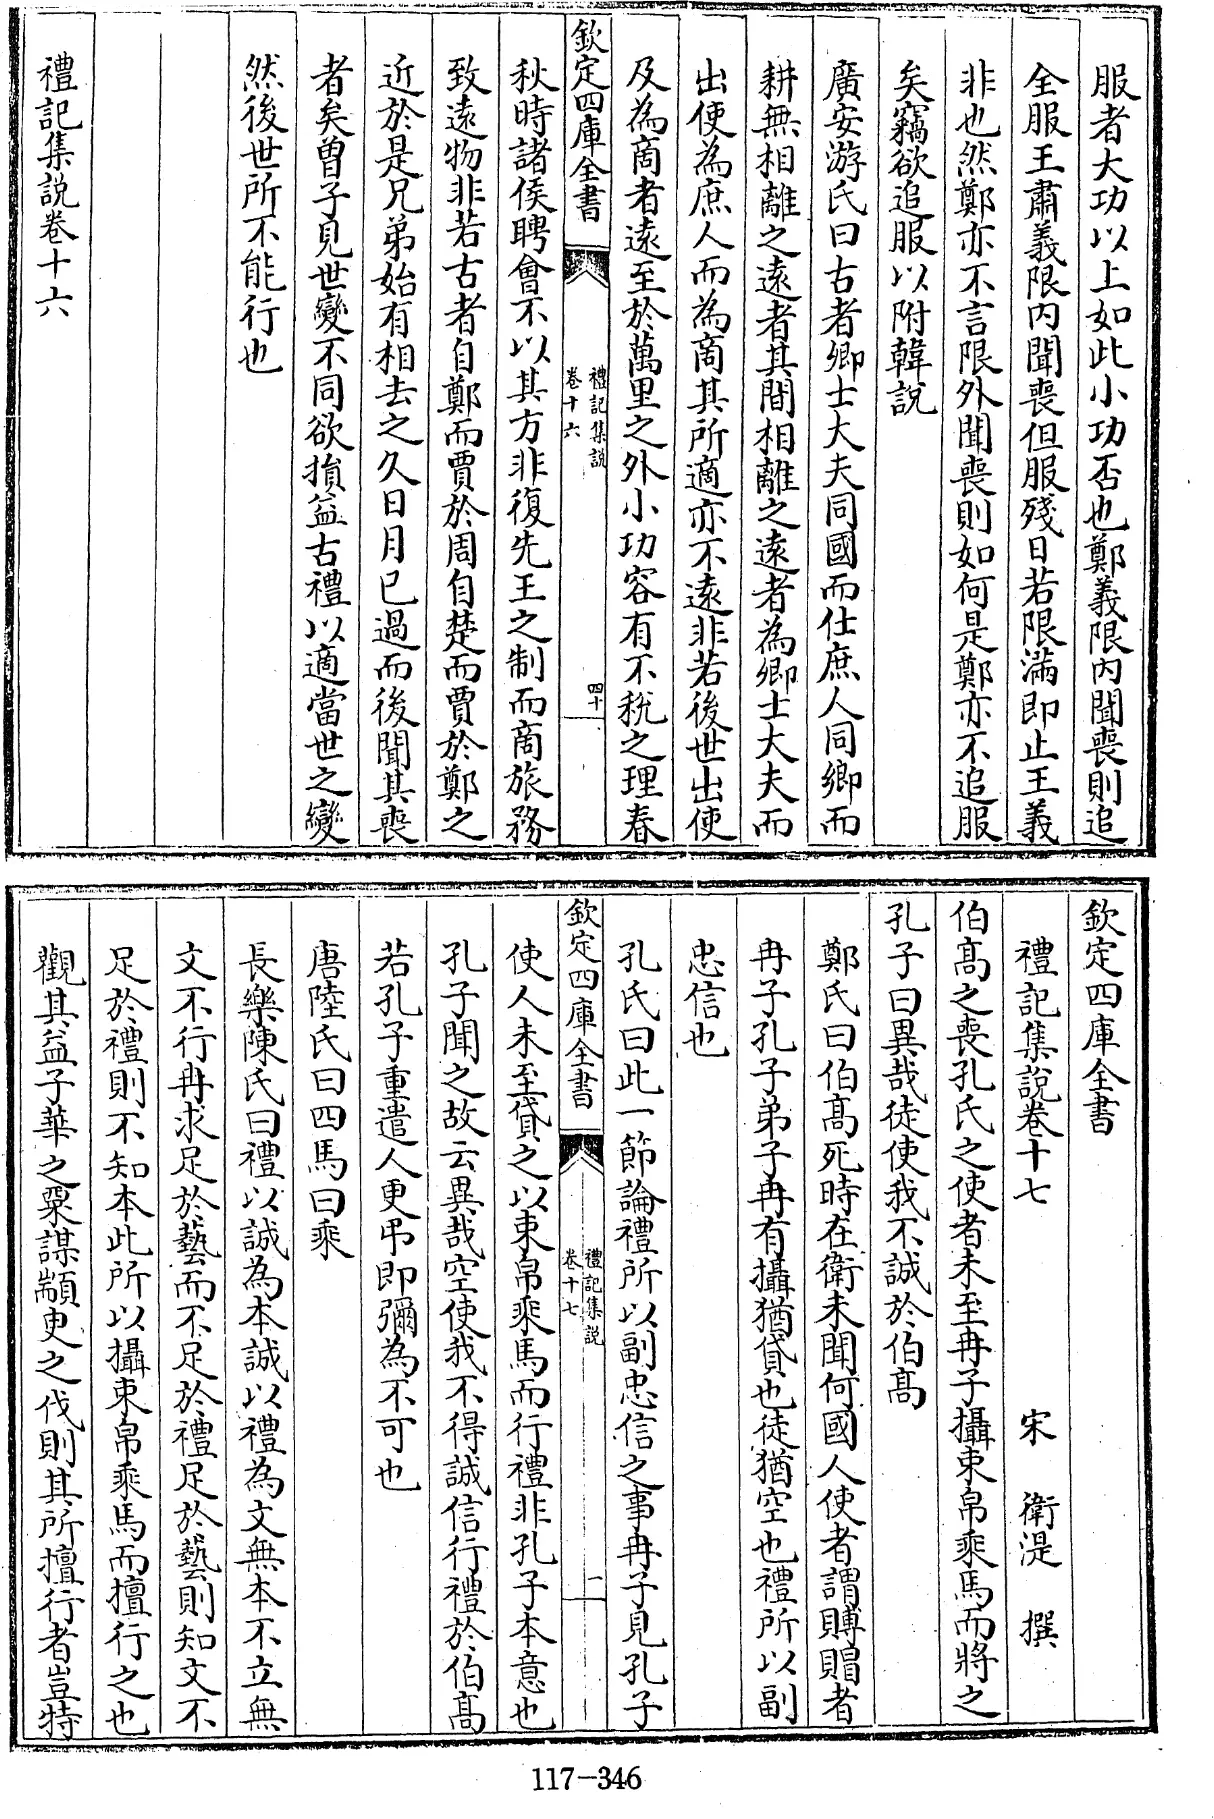 服者大功以上如此小功否也鄭義限内聞喪則追
全服王肅義限内聞喪但服殘日若限滿即止王義
非也然鄭亦不言限外聞喪則如何是鄭亦不追服
矣竊欲追服以附韓説
廣安游氏曰古者卿士大夫同國而仕庶人同鄉而
耕無相離之遠者其間相離之遠者為卿士大夫而
出使為庶人而為商其所適亦不遠非若後世出使
及為商者遠至於萬里之外小功容有不税之理春
欽定四庫全書
禮記集説
卷十六
四十
秋時諸侯聘會不以其方非復先王之制而商旅務
致遠物非若古者自鄭而賈於周自楚而賈於鄭之
近於是兄弟始有相去之久日月已過而後聞其喪
者矣曾子見世變不同欲損益古禮以適當世之變
然後世所不能行也
禮記集説卷十六
欽定四庫全書
禮記集說卷十七
宋 衛湜 撰
伯髙之喪孔氏之使者未至冉子攝束帛乘馬而將之
孔子曰異哉徒使我不誠於伯髙
鄭氏曰伯髙死時在衛未聞何國人使者謂賻賵者
冉子孔子弟子冉有攝猶貸也徒猶空也禮所以副
忠信也
孔氏曰此一節論禮所以副忠信之事冉子見孔子
欽定四庫全書
禮記集説
卷十七
一
使人未至貸之以束帛乘馬而行禮非孔子本意也
孔子聞之故云異哉空使我不得誠信行禮於伯髙
若孔子重遣人更弔即彌為不可也
唐陸氏曰四馬曰乘
長樂陳氏曰禮以誠為本誠以禮為文無本不立無
文不行冉求足於藝而不足於禮足於藝則知文不
足於禮則不知本此所以攝束帛乘馬而擅行之也
觀其益子華之粟謀顓臾之伐則其所擅行者豈特
117-346